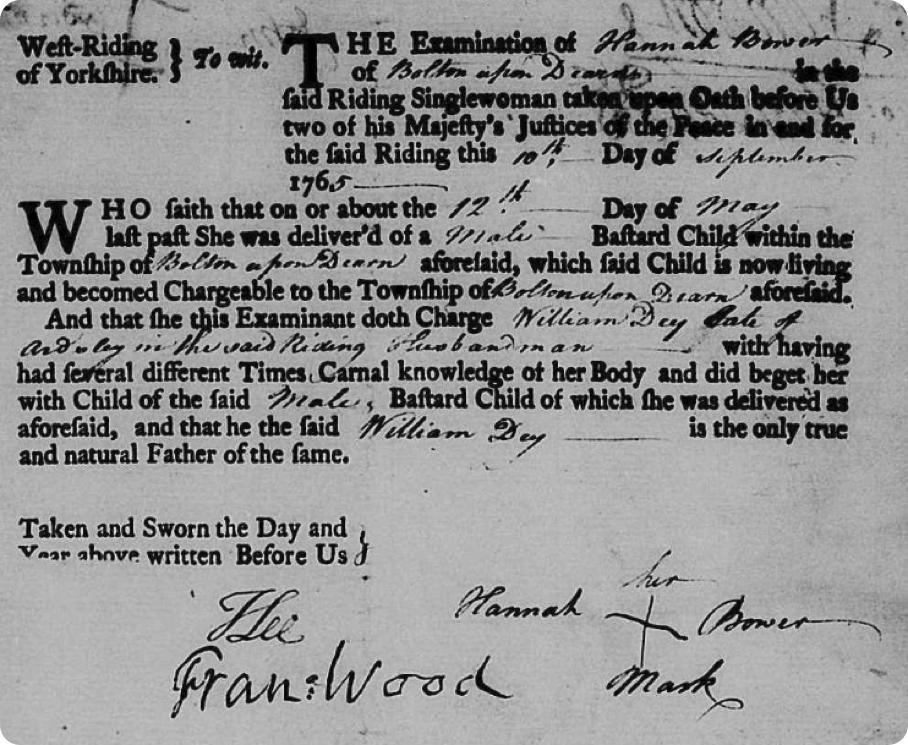 Weſt-Riding
of Yorkſhire.
} To wit.
THE Examination of Hannah Bower
of Bolton upon Dearn in the
ſaid Riding Singlewoman taken upon Oath before Us
two of his Majeſty's Juſtices of the Peace in and for
the ſaid Riding this 10th Day of September
1765
WHO ſaith that on or about the 12th Day of May
laſt paſt She was deliver'd of a Male Baſtard Child within the
Townſhip of Bolton upon Dearn aforeſaid, which ſaid Child is now living
and becomed Chargeable to the Townſhip of Bolton upon Dearn aforeſaid.
And that ſhe this Examinant doth Charge William Dey Late of
Ardsley in the said Riding Husbandman with having
had ſeveral different Times Carnal knowledge of her Body and did beget her
with Child of the ſaid Male Baſtard Child of which ſhe was delivered as
aforeſaid, and that he the ſaid William Dey is the only true
and natural Father of the ſame.
Taken and Sworn the Day and
Year above written Before Us }
her
Hannah + Bower
Mark
Lee
Fran: Wood